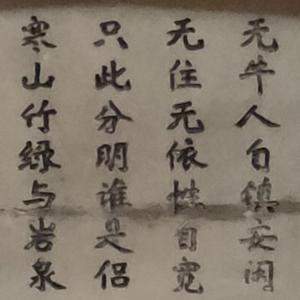 无牛人自镇安闲
无住无依性自宽
只此分明谁是侣
寒山竹绿与岩泉